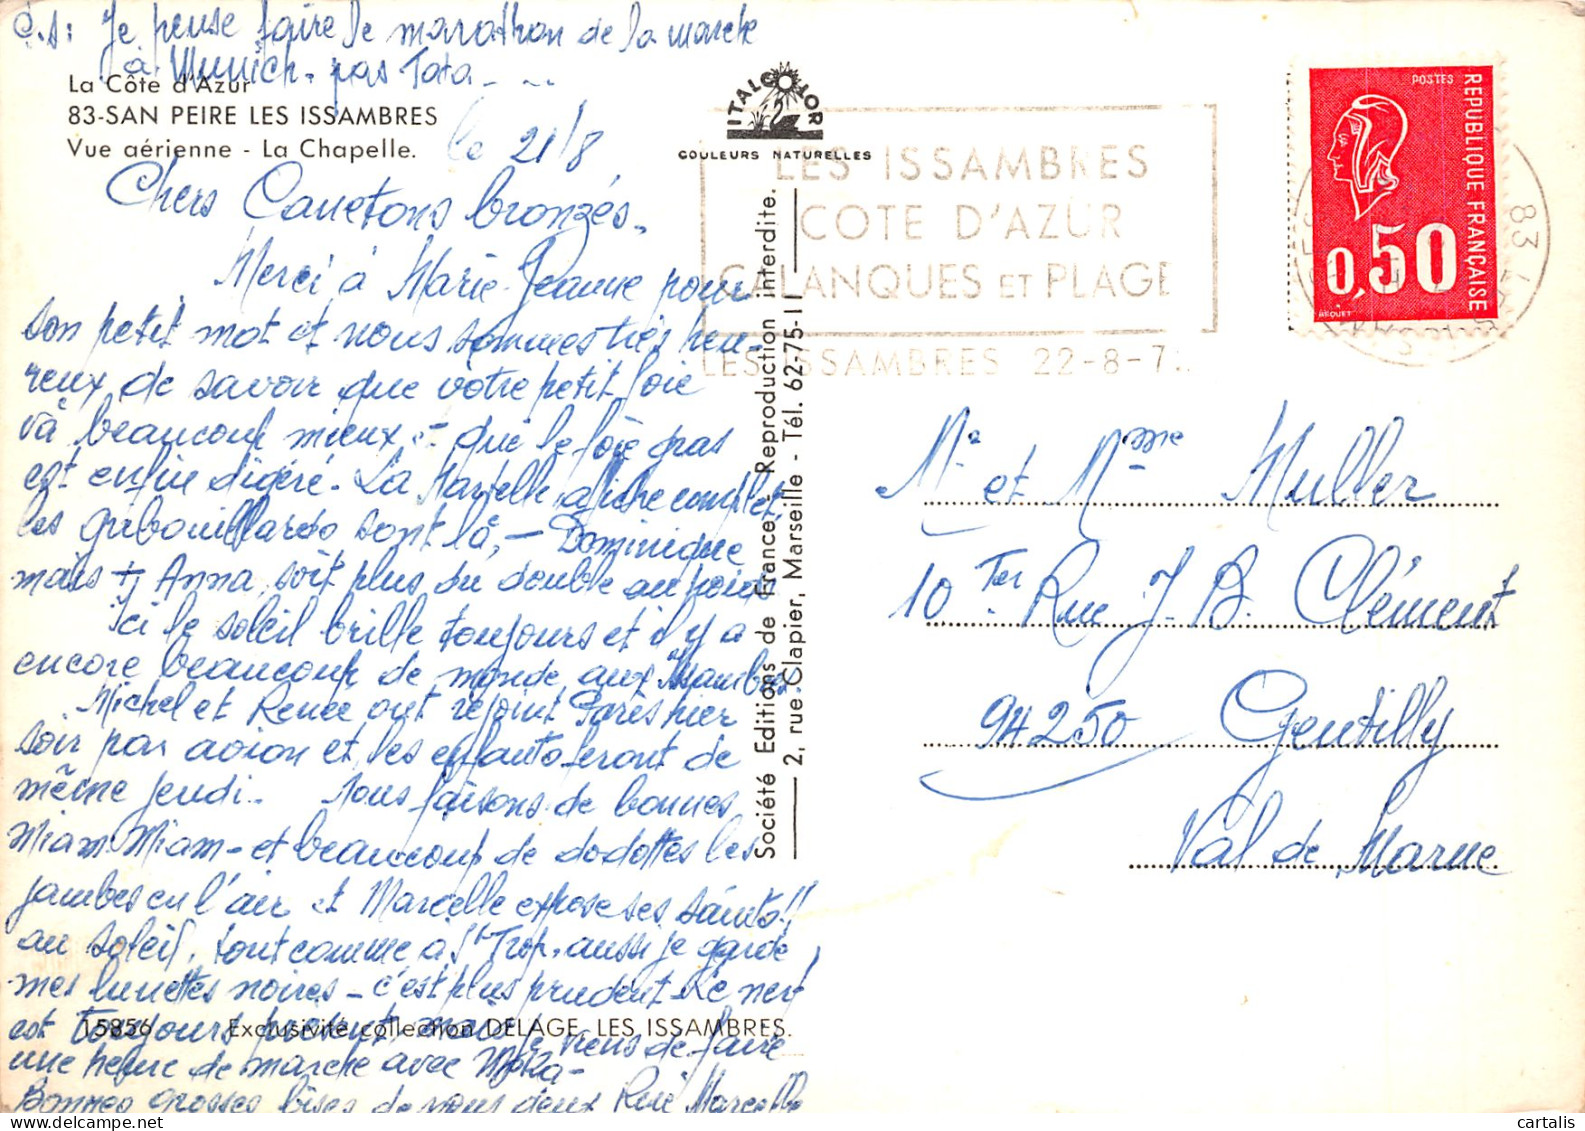 P.S: Je pense faire le marathon de la marche
à Munich - pas Tata - ...
La Côte d'Azur
83-SAN PEIRE LES ISSAMBRES
Vue aérienne - La Chapelle.
le 21/8
Chers Canetons bronzés.
Merci à Marie-Jeanne pour
son petit mot et nous sommes très heu-
reux de savoir que votre petit foie
và beaucoup mieux - que le foie gras
est enfin digéré. La Martelle affiche complet,
les gribouillards sont là, - Dominique
mais + Anna, soit plus du double au poids
Ici le soleil brille toujours et il y a
encore beaucoup de monde aux Issambres
Michel et Renée ont rejoint Paris hier
soir par avion et les enfants feront de
même jeudi. Nous faisons de bonnes
Miam-Miam - et beaucoup de dodottes les
jambes en l'air et Marcelle expose ses saints!!
au soleil, tout comme à St Trop. aussi je garde
mes lunettes noires - c'est plus prudent - Le nerf
est toujours présent, mais je viens de faire
une heure de marche avec Moka -
Bonnes grosses bises de nous deux Riri Marcelle
15856 Exclusivité collection DELAGE, LES ISSAMBRES.
ITALCOLOR
COULEURS NATURELLES
Société Editions de France - Reproduction interdite.
2, rue Clapier, Marseille - Tél. 62-75-1
LES ISSAMBRES
COTE D'AZUR
CALANQUES ET PLAGE
LES ISSAMBRES 22-8-7
83
POSTES
REPUBLIQUE FRANÇAISE
0,50
BEQUET
Mr et Mme Muller
10 Ter Rue J. B. Clément
94250 Gentilly
Val de Marne
cartalis